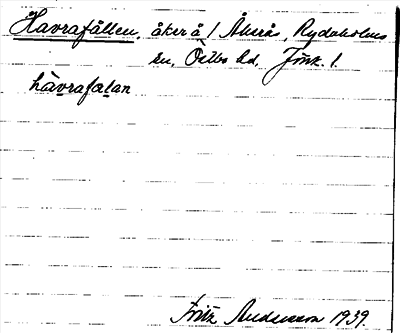 Havrafällen, åker å / Åkerås, Rydaholms
sn, Östbo hd, Jönk. l.
hàvrafälan
Fritz Andersson 1939.